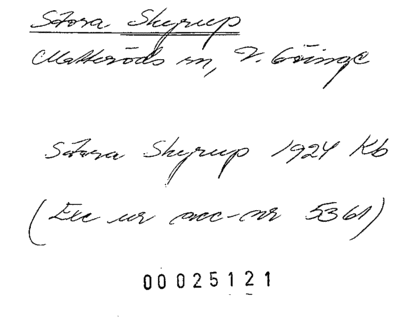 Stora Skyrup
Matteröds sn, V. Göinge
Stora Skyrup 1924 Kb
(Exc ur acc-nr 5361)
00025121